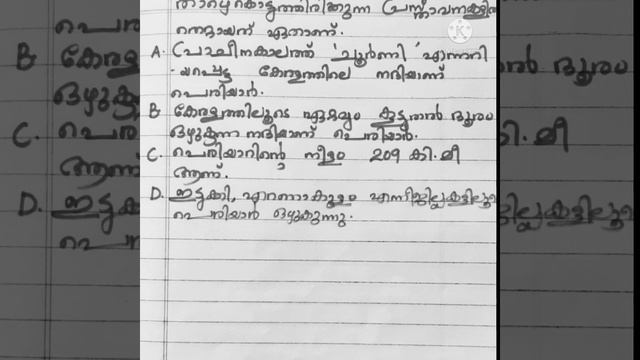 താഴെകൊടുത്തിരിക്കുന്ന പ്രസ്താവനകളിൽ
തെറ്റായത് ഏതാണ്.
A. പ്രാചീനകാലത്ത് 'ചൂർണി' എന്നറി
-യപ്പെട്ട കേരളത്തിലെ നദിയാണ്
പെരിയാർ.
B കേരളത്തിലൂടെ ഏറ്റവും കൂടുതൽ ദൂരം
ഒഴുകുന്ന നദിയാണ് പെരിയാർ.
C. പെരിയാറിന്റെ നീളം 209 കി.മീ
ആണ്.
D. ഇടുക്കി, എറണാകുളം എന്നീജില്ലകളിലൂടെ
പെരിയാർ ഒഴുകുന്നു.